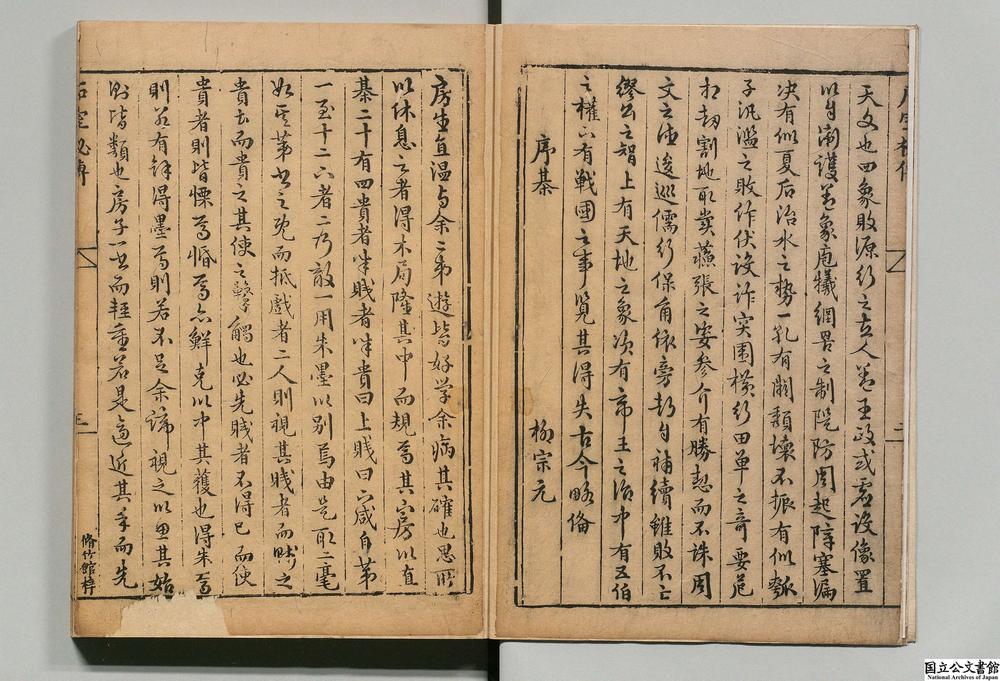 天文也四象既陳行之古人蓋王政或虛設像置
以自衛護蓋象庖犧網罟之制隄防周起障塞漏
决有似夏后治水之勢一孔有闕頽壞不振有似瓠
子汎濫之敗作伏設詐突圍橫行田單之奇要厄
相劫割地取賞蘇張之姿參分有勝恕而不誅周
文之德逡巡儒行保角依旁却自補續雖敗不亡
繆公之智上有天地之象次有帝王之治中有五伯
之權下有戰國之事覽其得失古今略備
序棊
柳宗元
房生直溫与余二弟遊皆好学余病其確也思所
以休息之者得木局隆其中而規焉其下方以直
棊二十有四貴者半賤者半貴曰上賤曰下咸自第
一至十二下者二乃敵一用朱墨以别焉由是取二毫
如其第书之既而抵戲者二人則視其賤者而賤之
貴者而貴之其使之擊觸也必先賤者不得已而使
貴者則皆慄焉惛焉亦鮮克以中其獲也得朱焉
則若有餘得墨焉則若不足余諦視之以思其始
則皆類也房子一书而輕重若是適近其手而先
石室秘傳
三
脩竹館梓
二
国立公文書館
National Archives of Japan